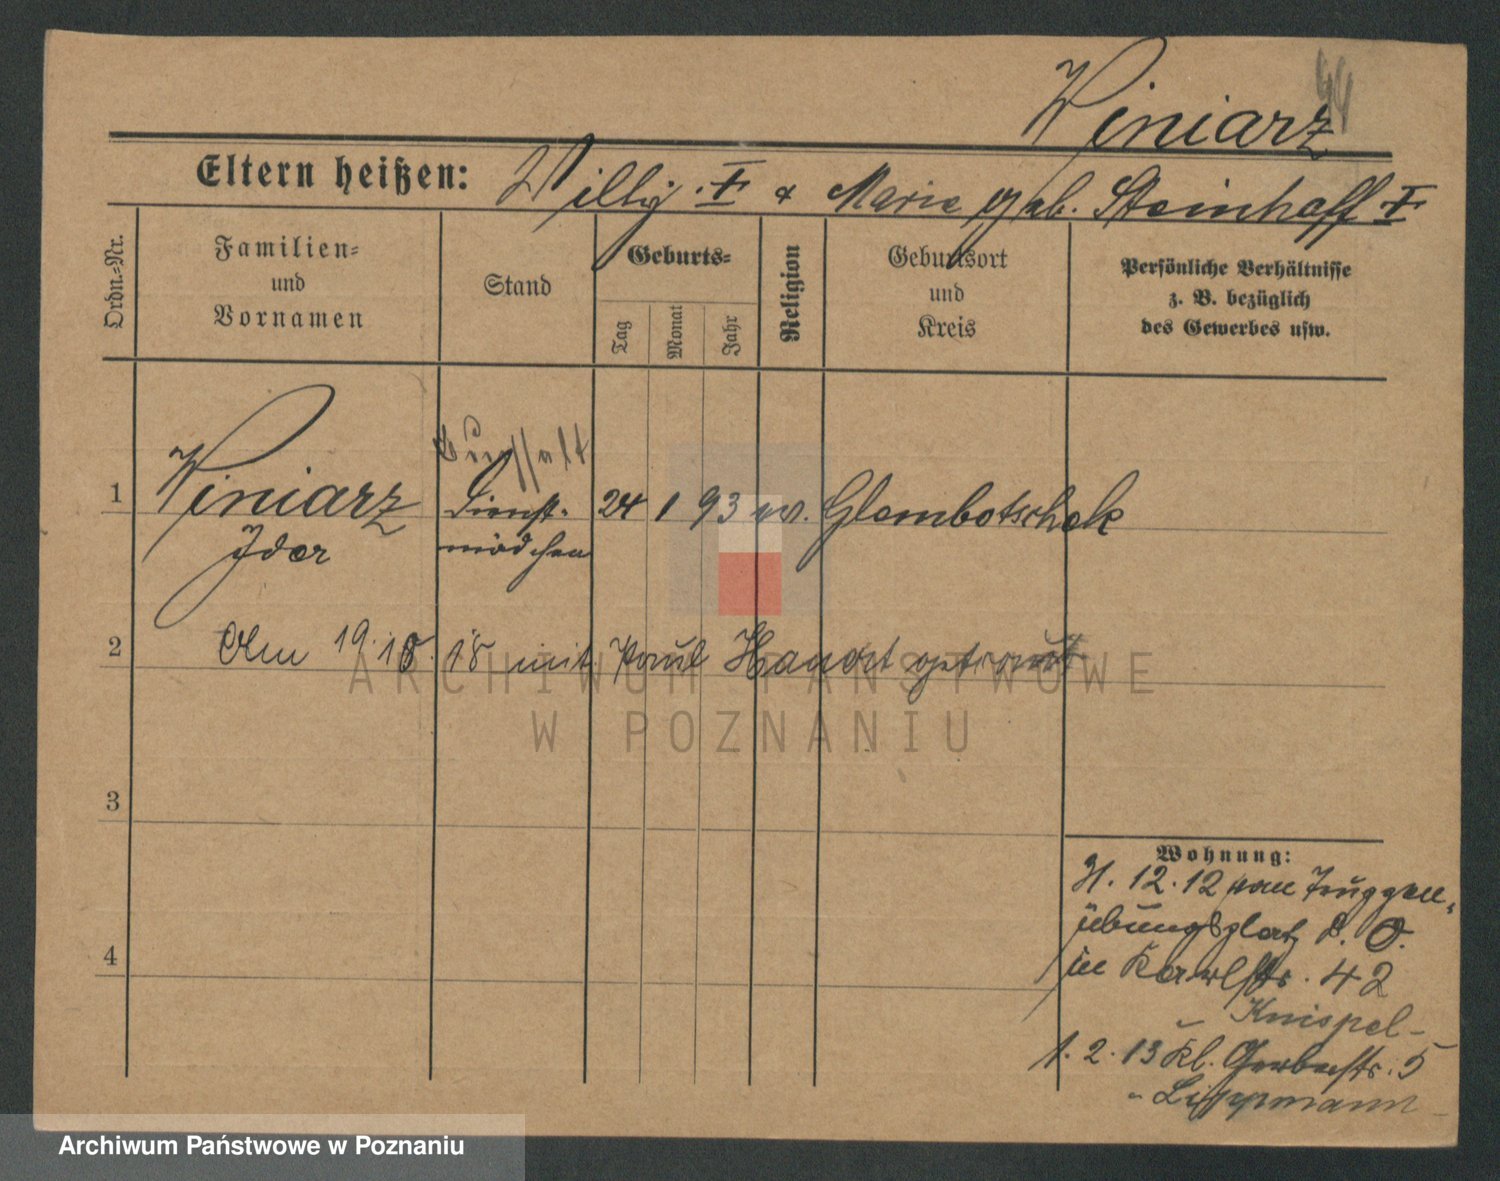 Winiarz
Eltern heißen: Willy † & Marie geb. Steinhoff †
Ordn.=Nr.
Familien=
und
Vornamen
Stand
Geburts=
Tag
Monat
Jahr
Religion
Geburtsort
und
Kreis
Persönliche Verhältnisse
z. B. bezüglich
des Gewerbes usw.
1
Winiarz
Ida
Dienst-
mädchen
24 1 93 ev. Glembotschek
2
Am 19. 18 mit Paul getraut
3
4
Wohnung:
12.12 von Truppen-
übungsplatz
in Karlstr. 42
Knispel-
1. 2. 13 Kl. Gerberstr. 5
- Lippmann -
ARCHIWUM PAŃSTWOWE
W POZNANIU
Archiwum Państwowe w Poznaniu